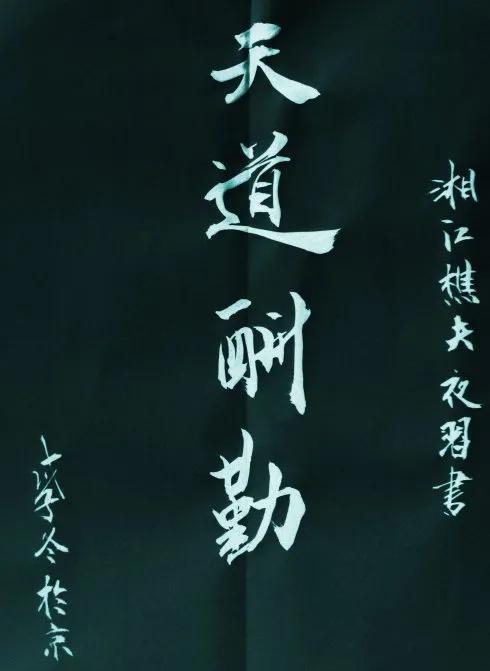 湘江樵夫夜習書
天道酬勤
冬於京